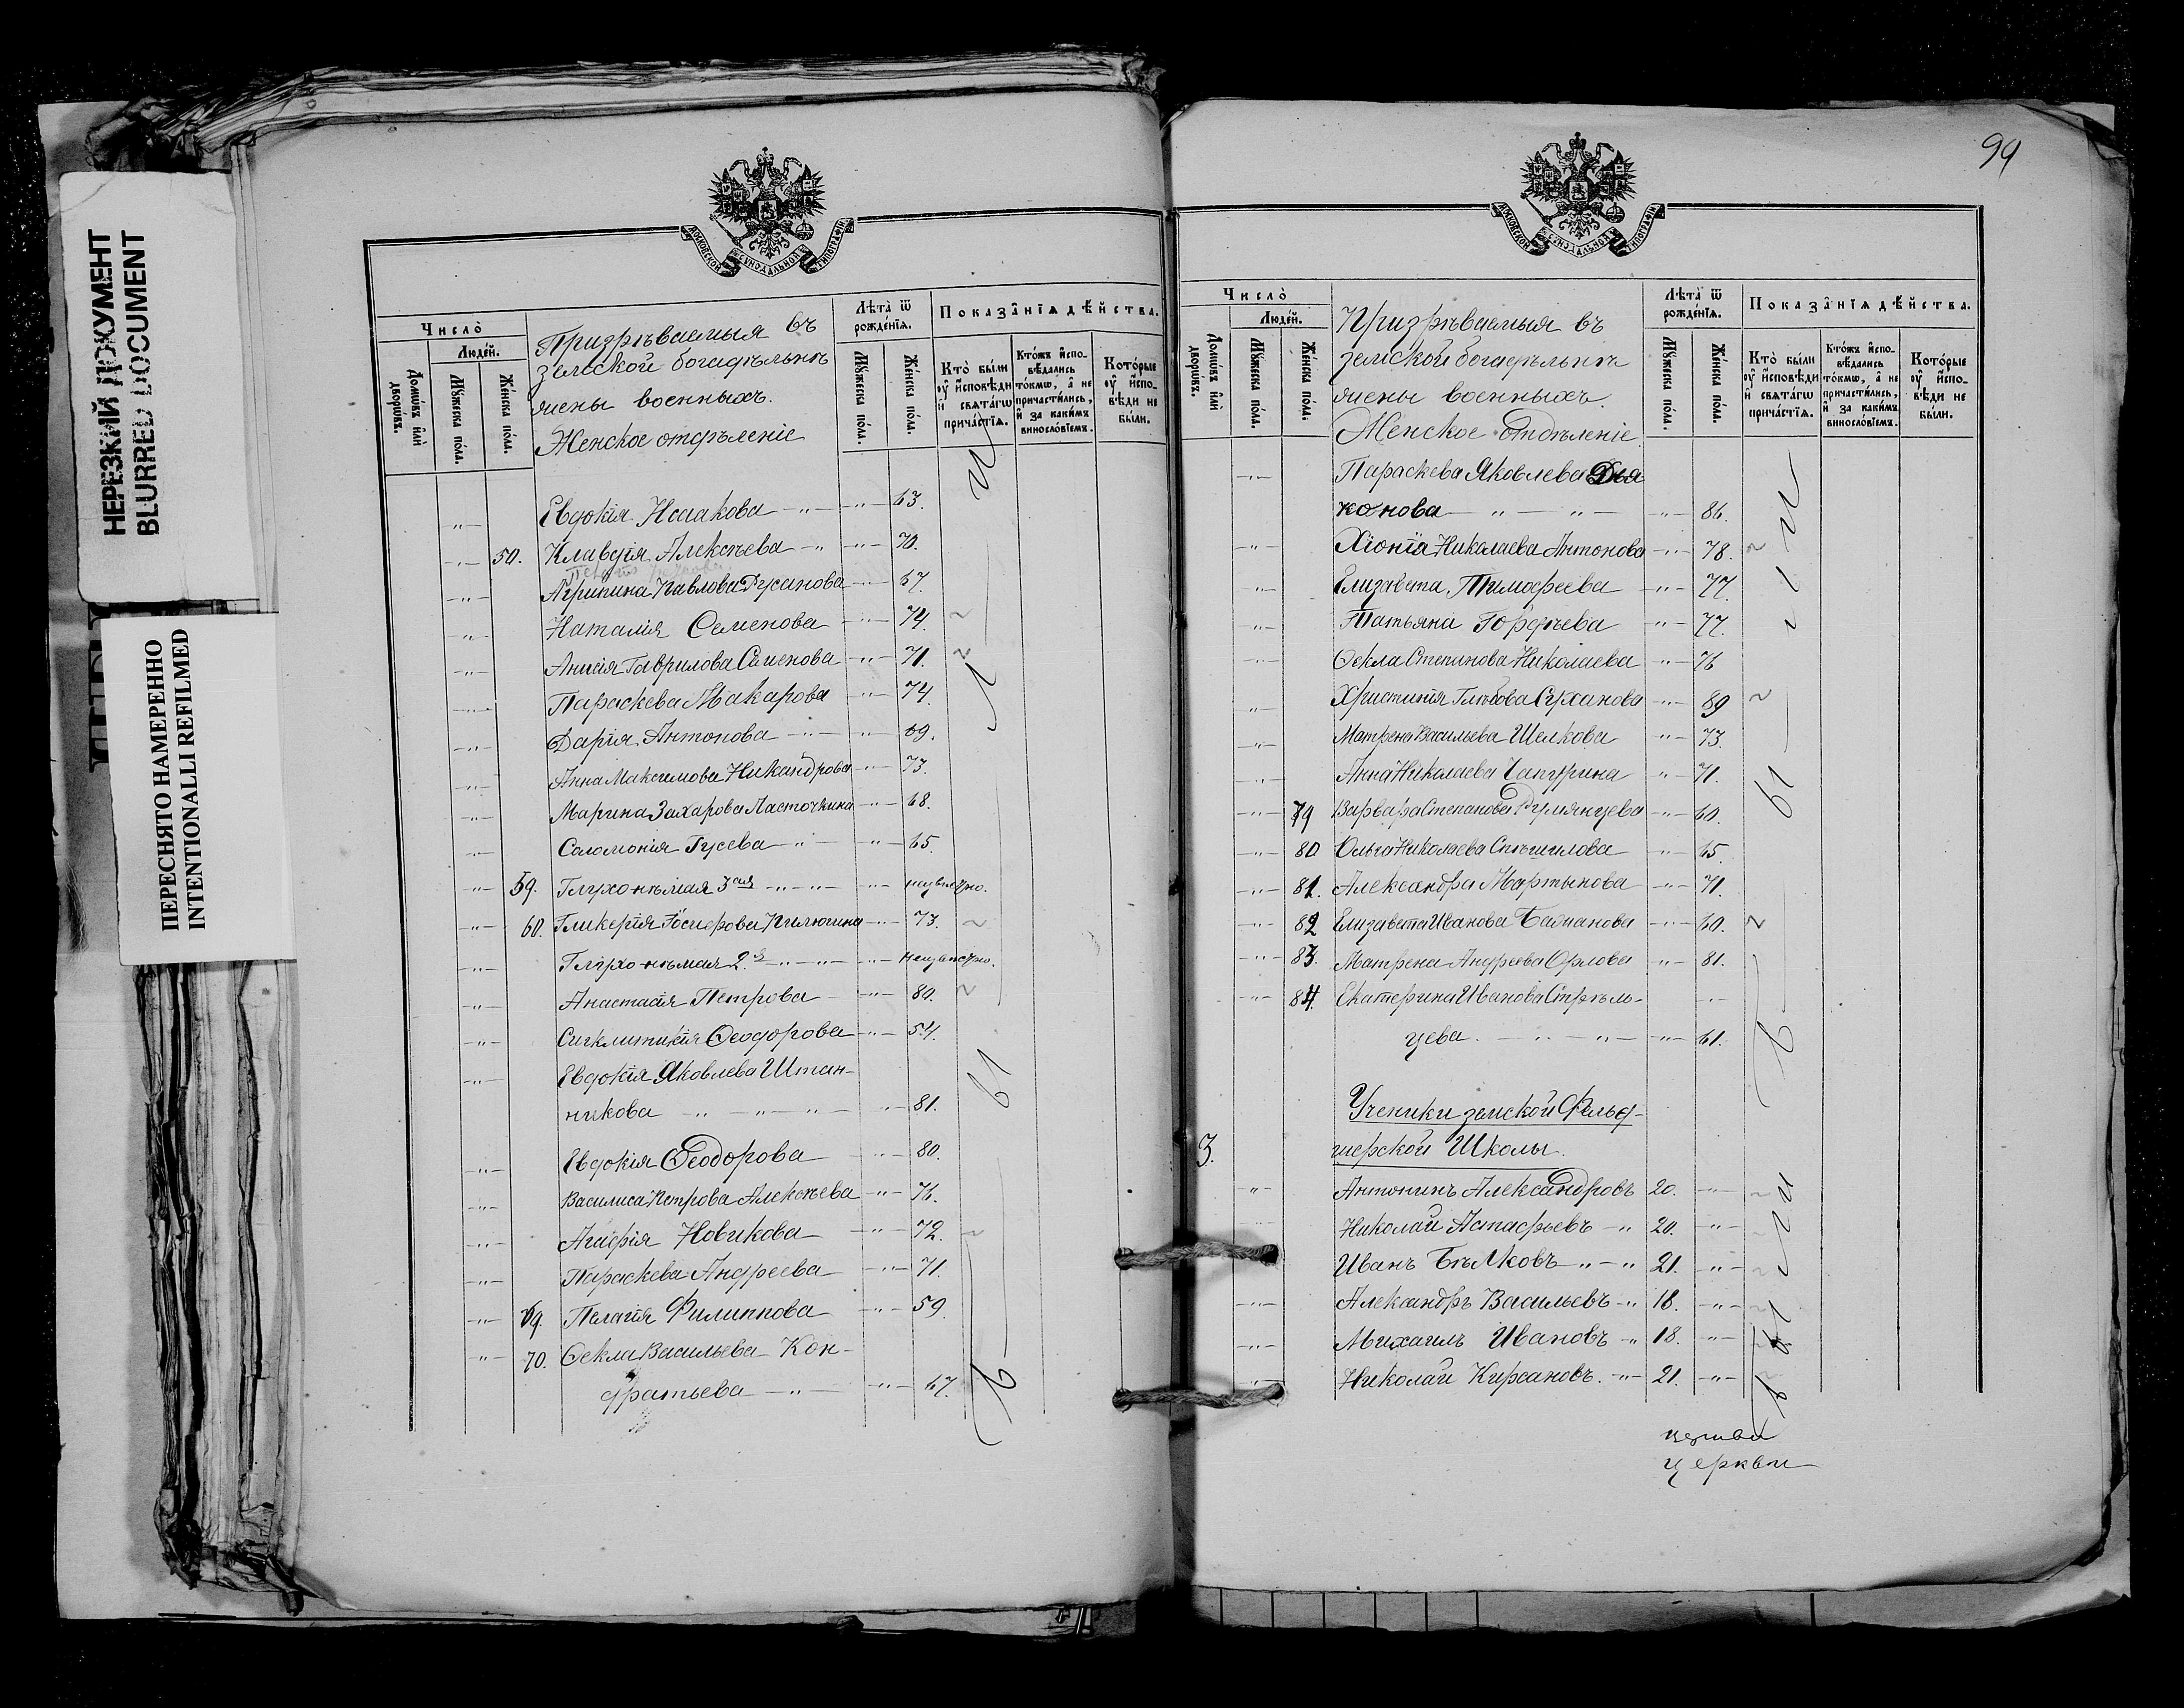 НЕРЕЗКИЙ ДОКУМЕНТ
BLURRED DOCUMENT
ПЕРЕСНЯТО НАМЕРЕННО
INTENTIONALLI REFILMED
МОСКОВСКОЙ СѴНОДАЛЬНОЙ ТИПОГРАФІИ
Число̀
Людей.
Домѡвъ и҆лѝ дворѡвъ.
Мꙋжеска по́ла.
Же́нска по́ла.
Призрѣваемыя въ
земской богадѣльнѣ
жены военныхъ.
Женское отдѣленіе
Лѣта̀ ѿ рожде́нїѧ.
Мꙋжеска по́ла.
Же́нска по́ла.
Показа̂нїѧ дѣ́йства.
Кто̀ бы́ли ᲂу҆ и҆сповѣди и҆ свѧта́гѡ прича́стїѧ.
Кто́жъ и҆спо-вѣ́дались то́кмѡ, а҆ не причасти́лись, и҆ за каки́мъ винословіемъ.
Кото́рые ᲂу҆ и҆спо-вѣди не бы́ли.
-"- Евдокія Исаакова -"- 63.
-"- 50. Клавдія Алексѣева -"- 70.
-"- Агрипина Павлова Русанова -"- 67.
-"- Наталія Семенова -"- 74.
-"- Анисія Гаврилова Семенова -"- 71.
-"- Параскева Макарова -"- 74.
-"- Дарія Антонова -"- 69.
-"- Анна Максимова Никандрова -"- 73.
-"- Марина Захарова Ласточкина -"- 68.
-"- Соломонія Гусева -"- 65.
-"- 59. Глухо-нѣмая 3ая -"- неизвѣстно.
-"- 60. Гликерія Іосифова Пилюгина -"- 73.
-"- Глухо-нѣмая 2я -"- неизвѣстно.
-"- Анастасія Петрова -"- 80.
-"- Сигклитикія Ѳеодорова -"- 54.
-"- Евдокія Яковлева Штан-
никова -"- 81.
-"- Евдокія Ѳеодорова -"- 80.
-"- Василиса Петрова Алексѣева -"- 76.
-"- Агафія Новикова -"- 72.
-"- Параскева Андреева -"- 71.
-"- 69. Пелагія Филиппова -"- 59.
-"- 70. Ѳекла Васильева Кон-
дратьева -"- 67.
99
МОСКОВСКОЙ СѴНОДАЛЬНОЙ ТИПОГРАФІИ
Число̀
Людей.
Домѡвъ и҆лѝ дворѡвъ.
Мꙋжеска по́ла.
Же́нска по́ла.
Призрѣваемыя въ
земской богадѣльнѣ
жены военныхъ.
Женское отдѣленіе.
Лѣта̀ ѿ рожде́нїѧ.
Мꙋжеска по́ла.
Же́нска по́ла.
Показа̂нїѧ дѣ́йства.
Кто̀ бы́ли ᲂу҆ и҆сповѣди и҆ свѧта́гѡ прича́стїѧ.
Кто́жъ и҆спо-вѣ́дались то́кмѡ, а҆ не причасти́лись, и҆ за каки́мъ винословіемъ.
Кото́рые ᲂу҆ и҆спо-вѣди не бы́ли.
-"- Параскева Яковлева Дья
конова -"- 86.
-"- Хіонія Николаева Антонова -"- 78.
-"- Елизавета Тимофеева -"- 77.
-"- Татьяна Гордѣева -"- 77.
-"- Ѳекла Степанова Николаева -"- 76
-"- Христинія Глѣбова Суханова -"- 89
-"- Матрена Васильева Шелкова -"- 73.
-"- Анна Николаева Чапурина -"- 71.
-"- 79 Варвара Степанова Румянцева -"- 60.
-"- 80 Ольга Николаева Спѣшилова -"- 65.
-"- 81. Александра Мартынова -"- 71.
-"- 82 Елизавета Иванова Башанова -"- 60.
-"- 83. Матрена Андреева Орлова -"- 81.
-"- 84. Екатерина Иванова Стрѣль-
цева. -"- 61.
Ученики земской Фельд-
3. шерской Школы.
-"- Антонинъ Александровъ 20. -"-
Николай Астафьевъ -"- 20. -"-
Иванъ Бѣлковъ -"- 21. -"-
-"- Александръ Васильевъ -"- 18. -"-
-"- Михаилъ Ивановъ -"- 18. -"-
-"- Николай Кирсановъ. -"- 21. -"-
церкви